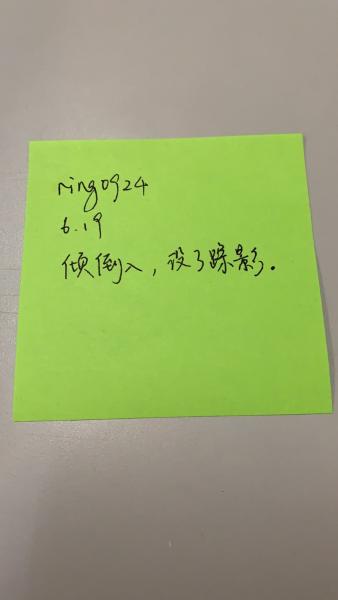 ring0924
6.19
倾倒入，没了踪影。